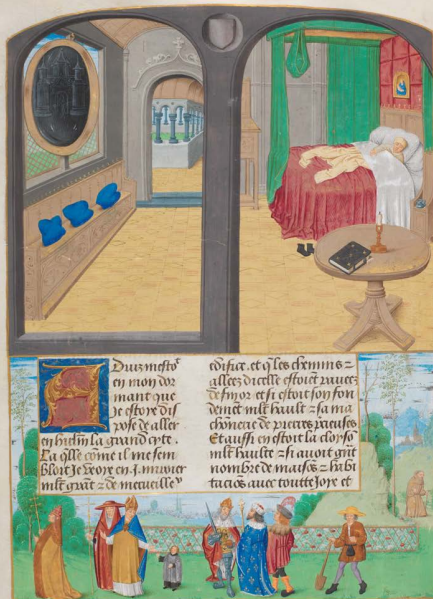 Aduiz mestoᵗ
en mon dor
mant que
Je estoye dis
pose de aller
la grand cyte.
La qlle come il me sem
bloit Je veoye en .j.
mlt grãt ⁊ de merueille
edifice. et q̃ les chemins ⁊
allees dicelle estoiẽt pauees
de fin or et si estoit son fon
demẽt mlt hault ⁊ sa ma
chonerie de pierres p̃cieuses
Et aussi en estoit la
mlt haulte ⁊ si auoit grãt
nombre de maisõs ⁊ habi
tacions auec toutte Joye et